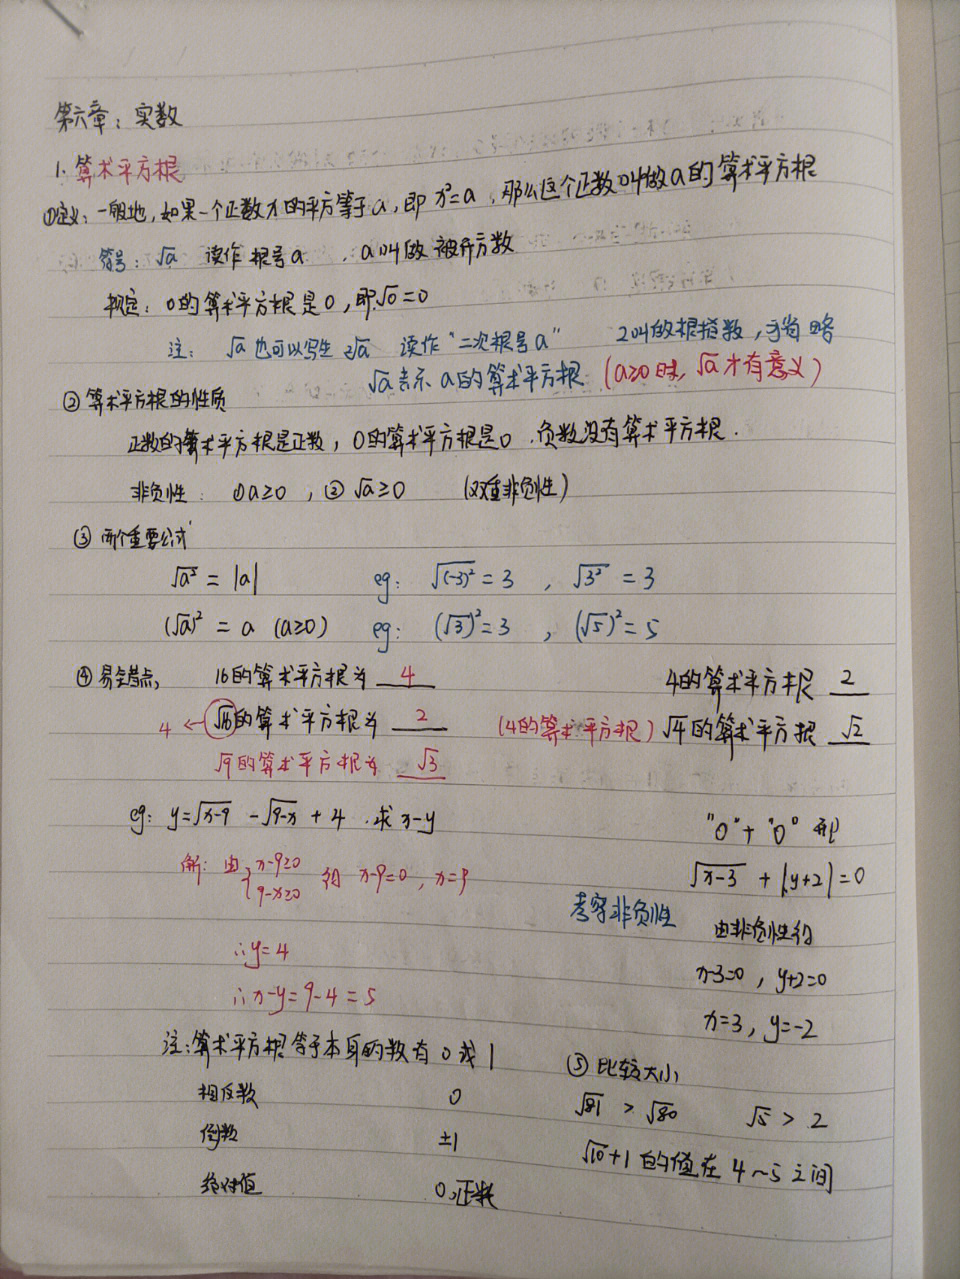 第六章：实数
1.算术平方根
①定义：一般地，如果一个正数x的平方等于a，即 x²=a，那么这个正数叫做a的算术平方根
符号：√a 读作 根号a ，a叫做 被开方数
规定：0的算术平方根是0，即√0=0
注： √a也可以写生 ²√a 读作"二次根号a" 2叫做根指数，可省略
√a表示 a的算术平方根 (a≥0时，√a才有意义)
②算术平方根的性质
正数的算术平方根是正数，0的算术平方根是0，负数没有算术平方根.
非负性： ①a≥0 ，② √a≥0 (双重非负性)
③ 两个重要公式
√a² = |a| eg： √(-3)² = 3 ， √3² = 3
(√a)² = a (a≥0) eg： (√3)²=3 ， (√5)²=5
④易错点， 16的算术平方根为 4 4的算术平方根 2
4 ← √16的算术平方根为 2 (4的算术平方根) √4的算术平方根 √2
√9的算术平方根为 √3
eg： y=√x-9 -√9-x + 4 ，求 x-y
解：由{x-9≥0 9-x≥0 得 x-9=0，x=9
∴y=4
∴x-y=9-4=5
"0"+"0" 型
√x-3 + |y+2|=0
考察非负性 由非负性得
x-3=0，y+2=0
x=3，y=-2
注：算术平方根等于本身的数有 0或1
相反数 0
倒数 ±1
绝对值 0,正数
⑤ 比较大小
√81 > √80 √5 > 2
√10+1 的值在 4～5 之间